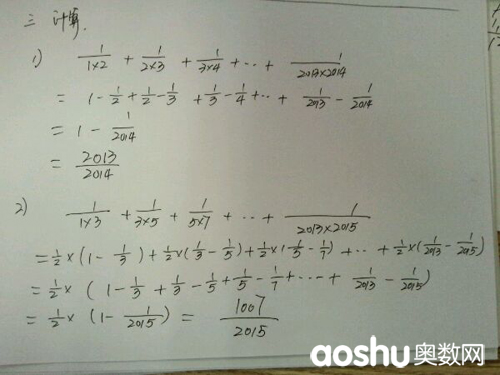 三 计算.
1) 1/1×2 + 1/2×3 + 1/3×4 + ‥ + 1/2013×2014
= 1 - 1/2 + 1/2 - 1/3 + 1/3 - 1/4 + ‥ + 1/2013 - 1/2014
= 1 - 1/2014
= 2013/2014
2) 1/1×3 + 1/3×5 + 1/5×7 + ‥ + 1/2013×2015
= 1/2 × (1 - 1/3) + 1/2 × (1/3 - 1/5) + 1/2 × (1/5 - 1/7) + ‥ + 1/2 × (1/2013 - 1/2015)
= 1/2 × (1 - 1/3 + 1/3 - 1/5 + 1/5 - 1/7 + ‥- + 1/2013 - 1/2015)
= 1/2 × (1 - 1/2015) = 1007/2015
aoshu奥数网